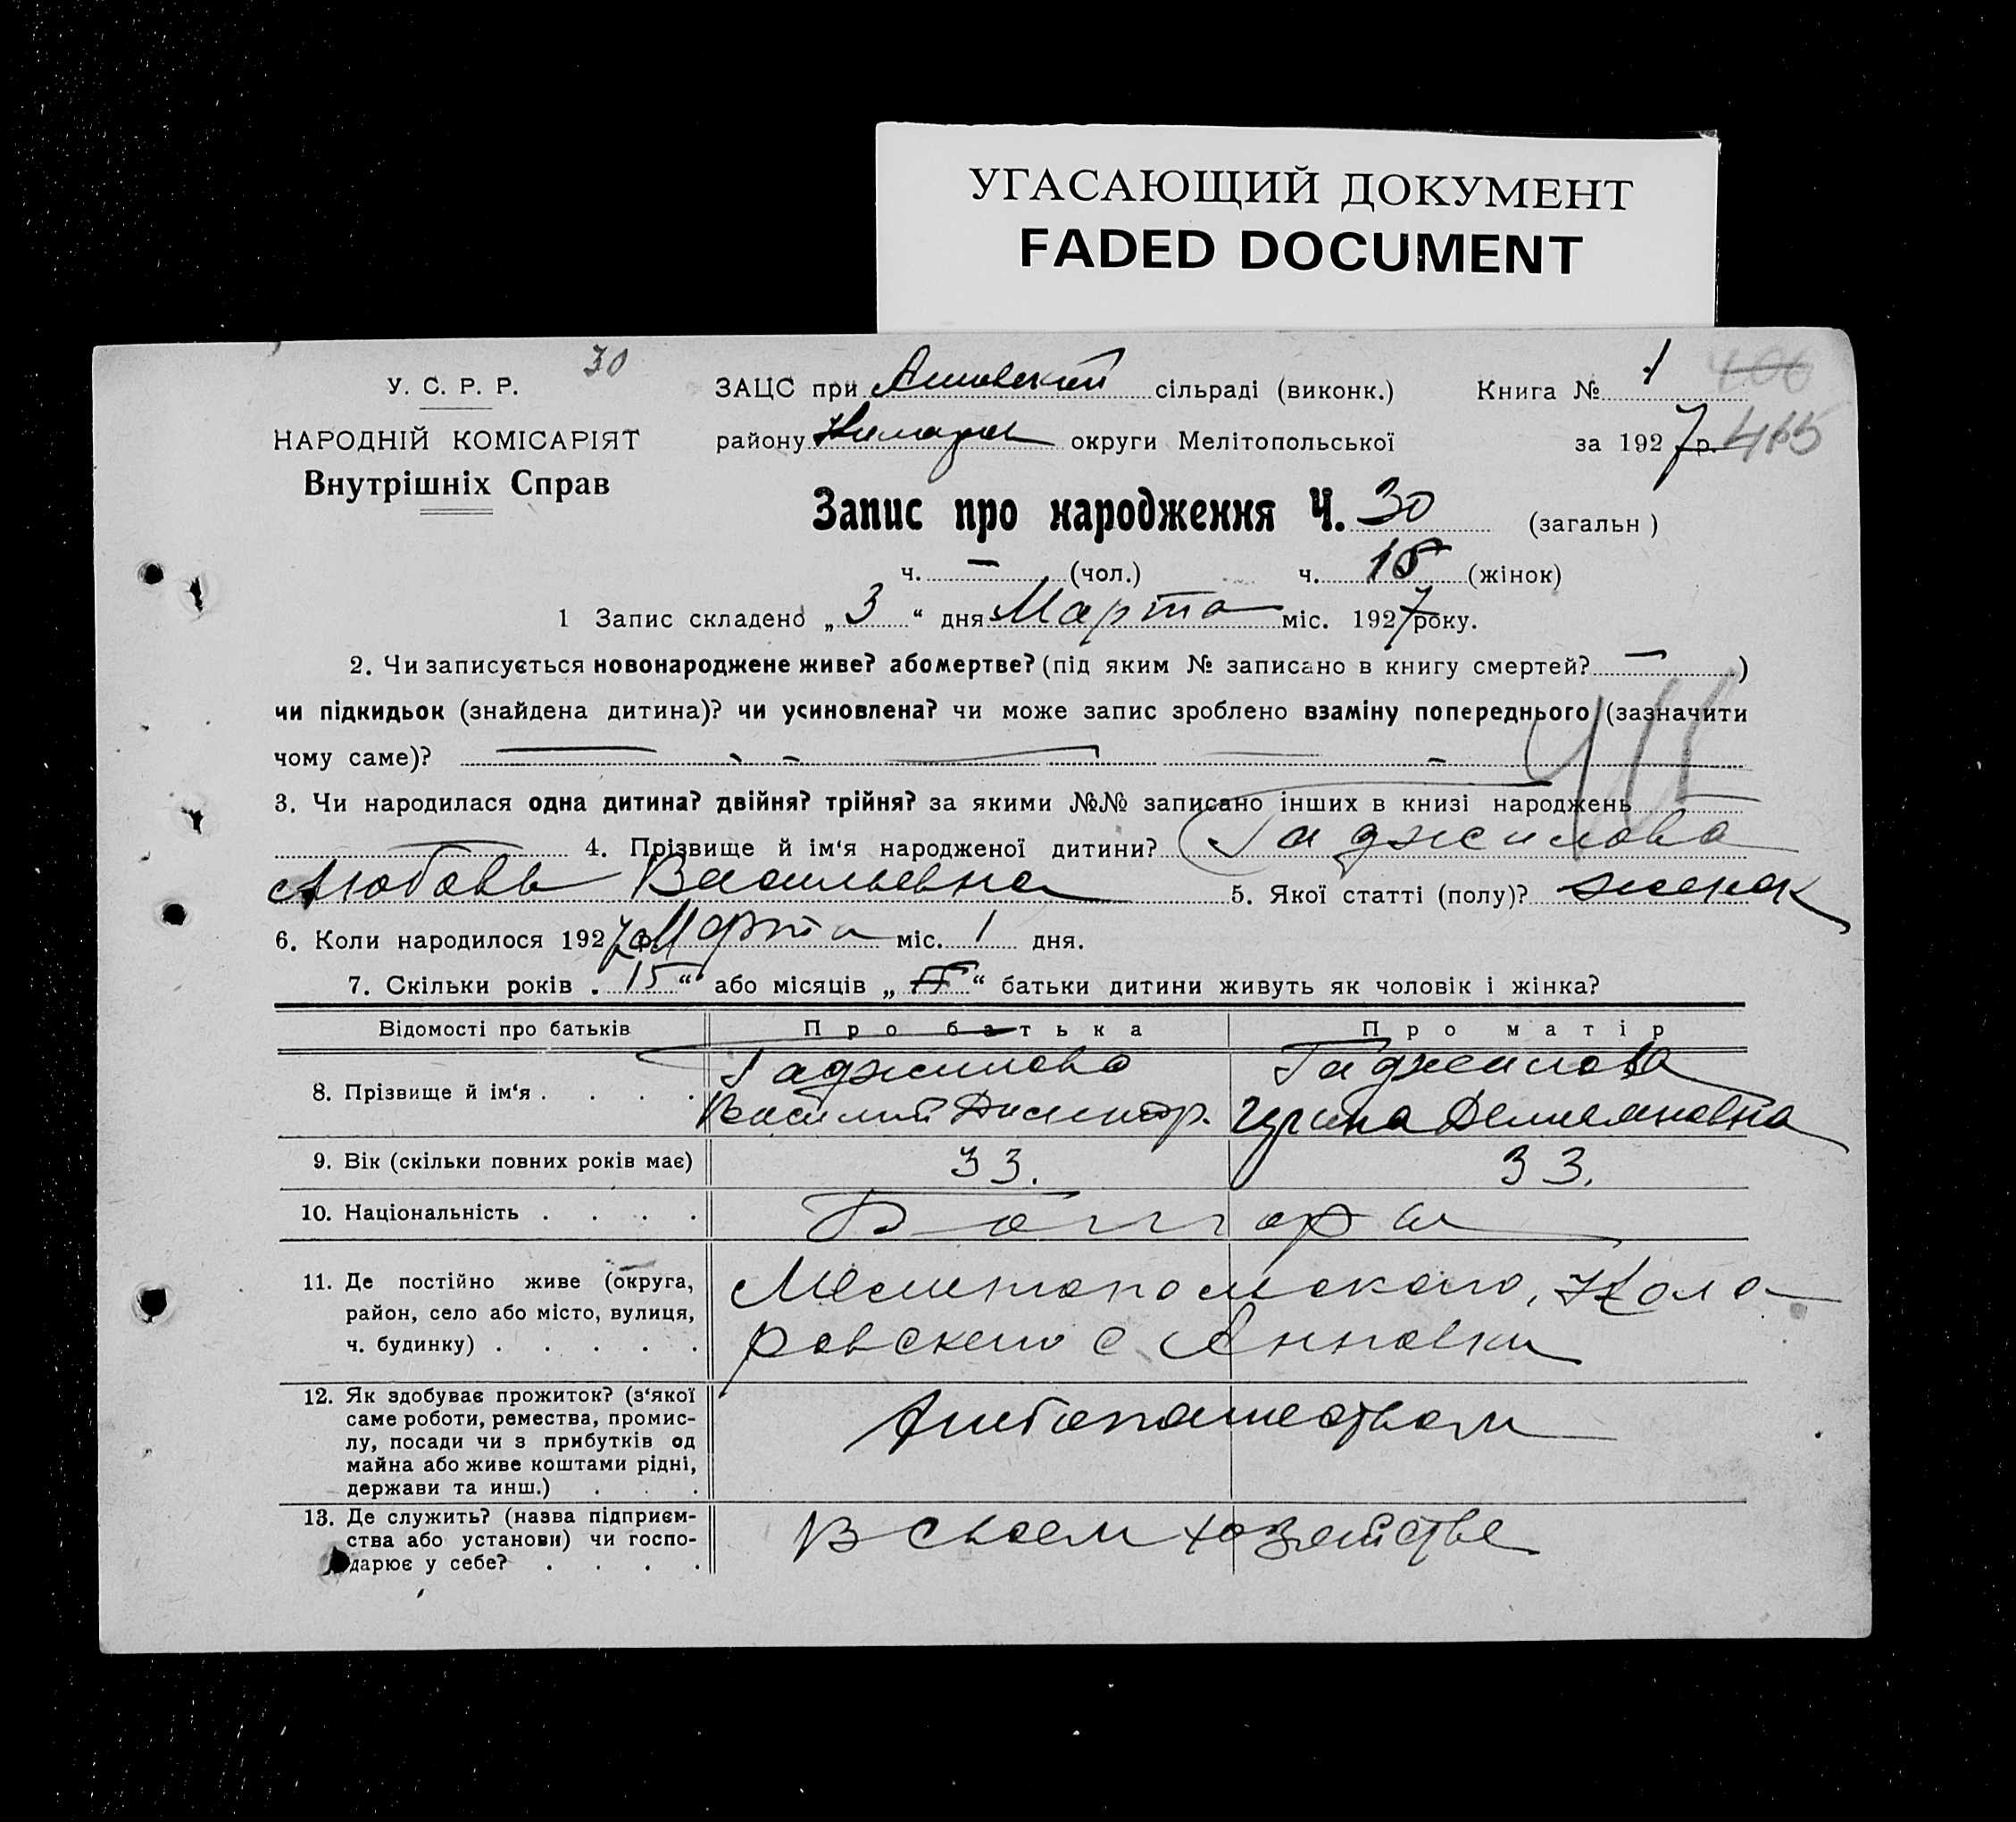 УГАСАЮЩИЙ ДОКУМЕНТ
FADED DOCUMENT
30
У. С. Р. Р.
НАРОДНІЙ КОМІСАРІЯТ
Внутрішніх Справ
ЗАЦС при сільраді (виконк.) Книга № 1 400
району округи Мелітопольської за 1927 р. 465
Запис про народження Ч. 30 (загальн)
ч. — (чол.) ч. 18 (жінок)
1 Запис складено „ 3 “ дня Марта міс. 1927 року.
2. Чи записується новонароджене живе? або мертве? (під яким № записано в книгу смертей? — )
чи підкидьок (знайдена дитина)? чи усиновлена? чи може запис зроблено взаміну попереднього (зазначити
чому саме)?
3. Чи народилася одна дитина? двійня? трійня? за якими №№ записано інших в книзі народжень
4. Прізвище й ім‘я народженої дитини? Гаджилова
Любовь Васильевна 5. Якої статті (полу)? женск
6. Коли народилося 1927 р. Марта міс. 1 дня.
7. Скільки років „ 15 “ або місяців „ “ батьки дитини живуть як чоловік і жінка?
Відомості про батьків Про батька Про матір
8. Прізвище й ім‘я . . . . Гаджилова Гаджилова
Василий Димитр.
9. Вік (скільки повних років має) 33. 33.
10. Національність . . . . Болгары
11. Де постійно живе (округа, Мелитопольского, Кола
район, село або місто, вулиця,
ч. будинку) . . . . . ровского с Анновки
12. Як здобуває прожиток? (з‘якої
саме роботи, ремества, промис-
лу, посади чи з прибутків од
майна або живе коштами рідні,
держави та инш.) . . . Хлебопашеством
13. Де служить? (назва підприєм-
ства або установи) чи госпо-
дарює у себе? . . . . В своем хозяйстве